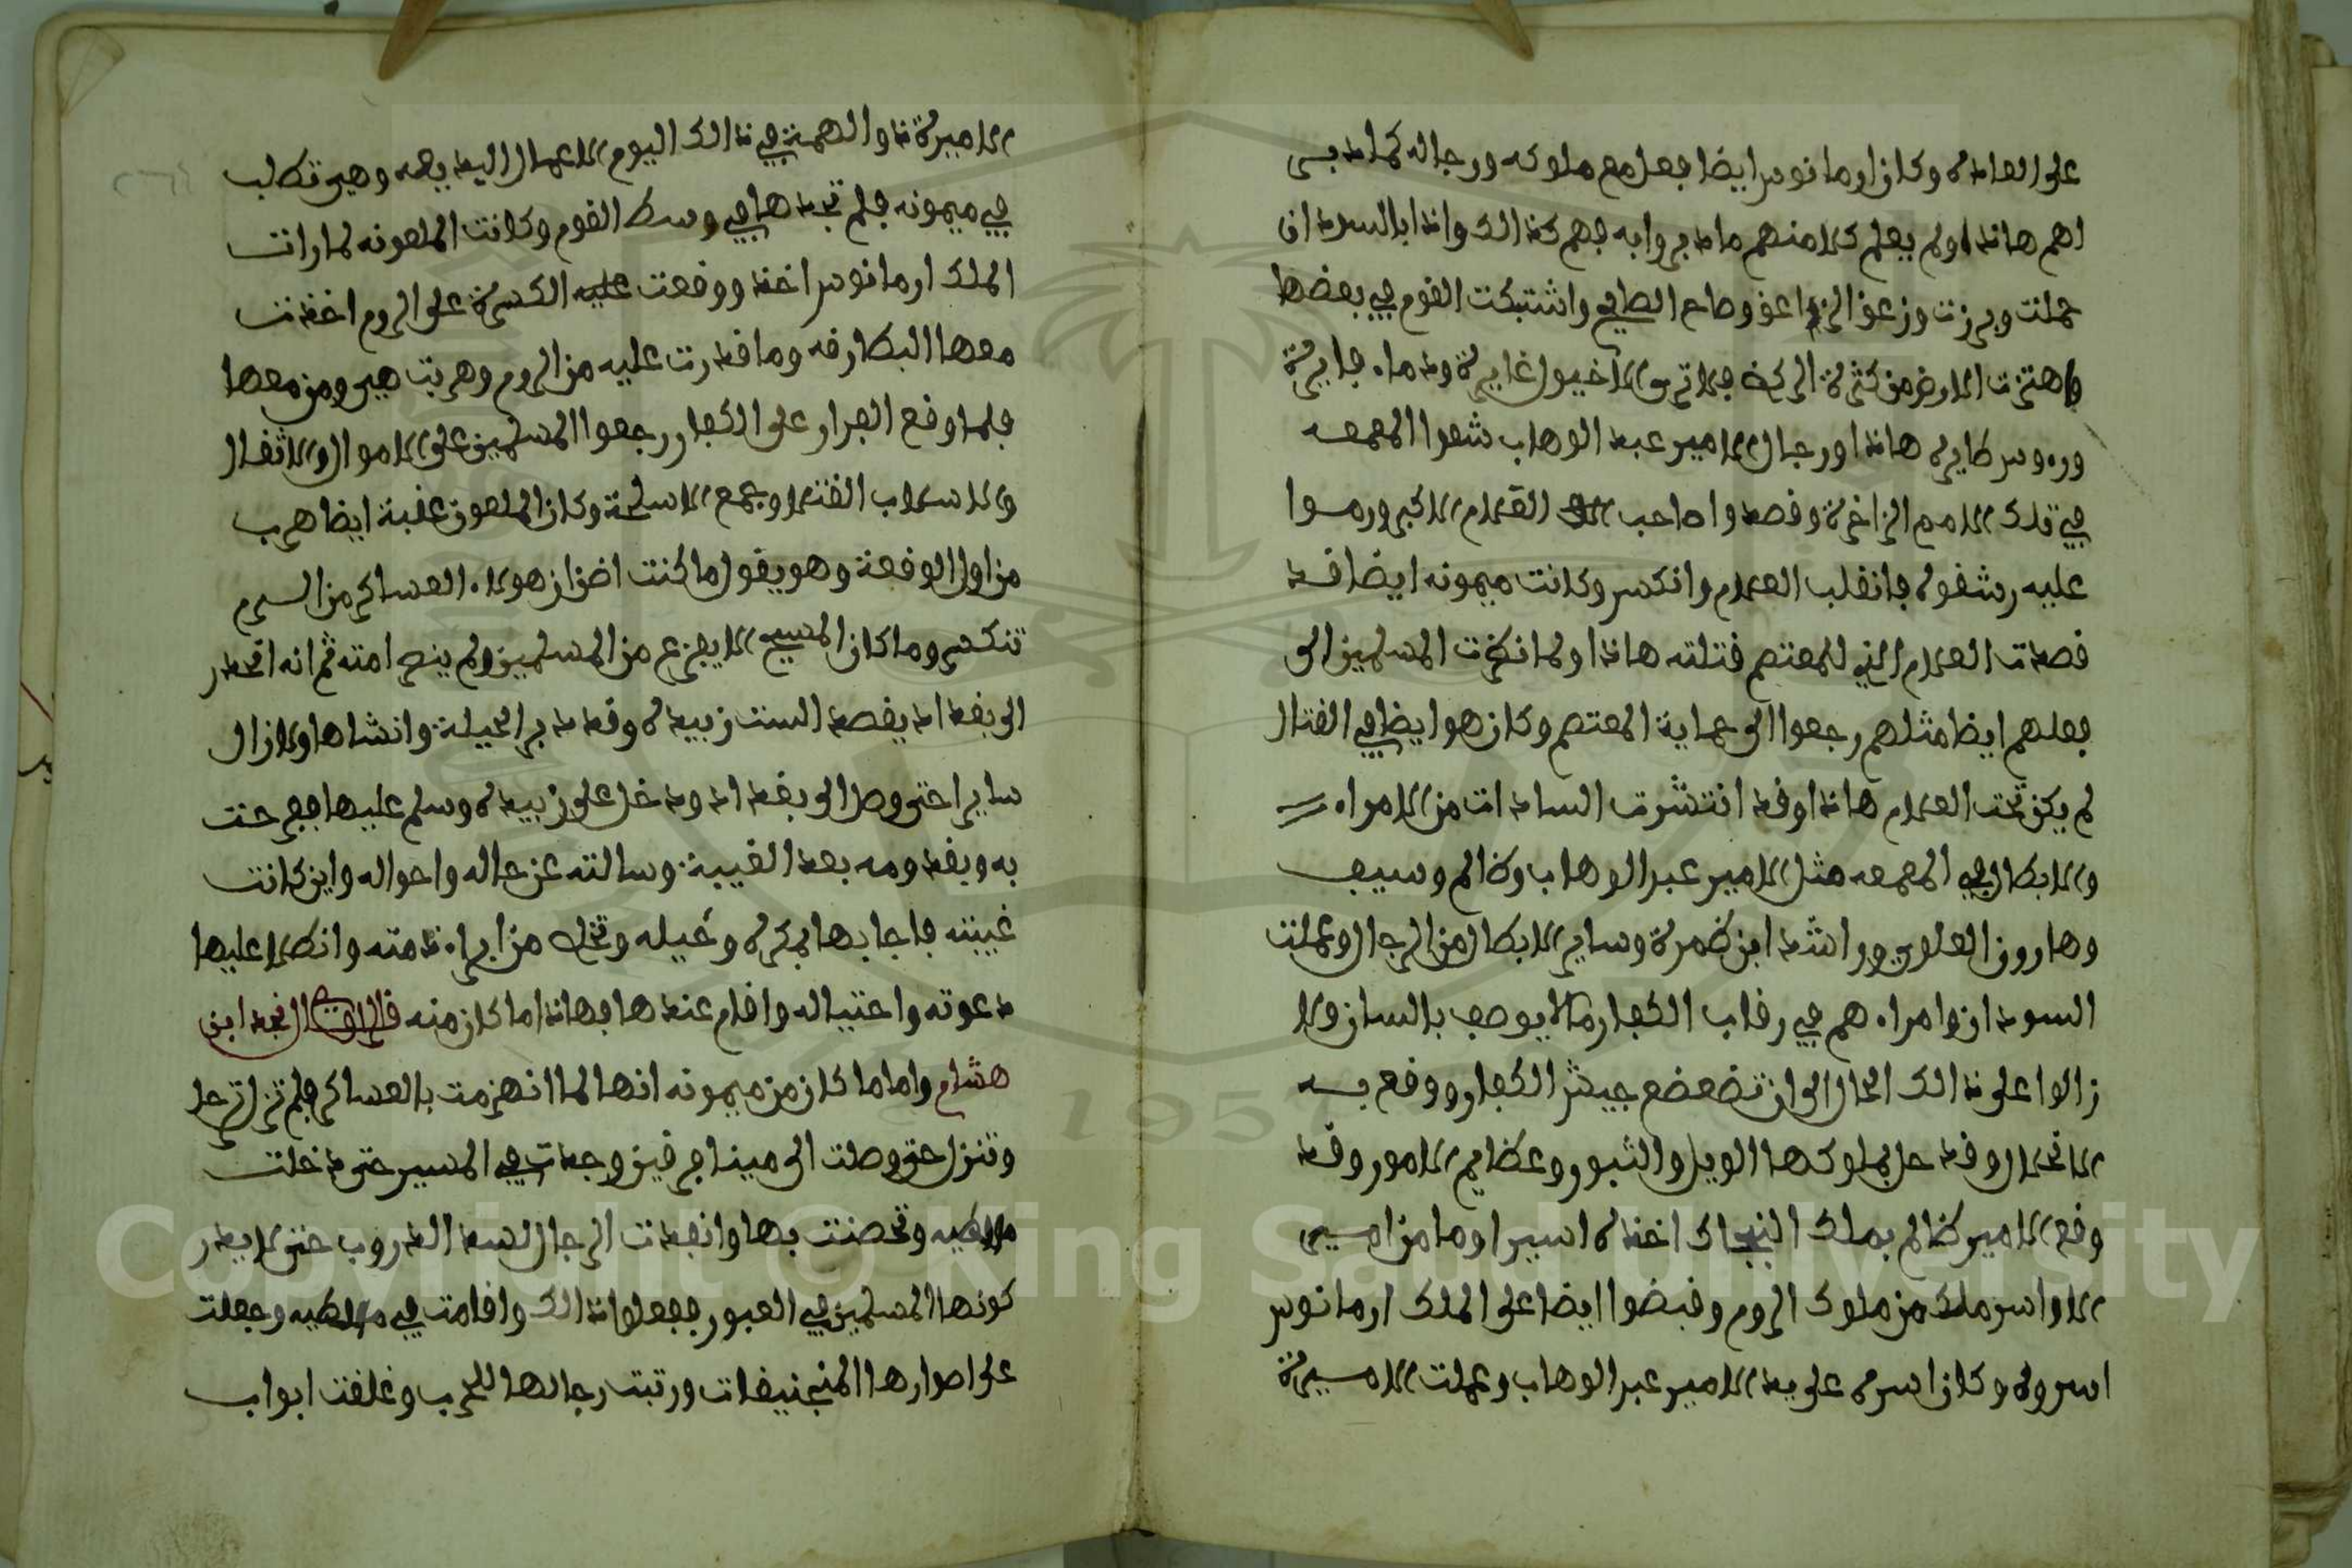 على العاده وكان ارمانوس ايضا فعل مع ملوكه ورجاله كما دبر
اهم هاذا ولم يعلم كلا منهم ما دبروا به فهم كذالك واذا بالسودان
حملت وبرزت وزعق الزاعق وصاح الصايح واشتبكت القوم في بعضها
واهتزت الارض من كثرة الركض فلا ترى الا خيول غايرة ودماء فايرة
ورءوس طايره هاذا ورجال الامير عبد الوهاب شقوا المعمعه
في تلك الامم الزاخرة وقصدوا صاحب العلام الاكبر ورموا
عليه رشقوه فانقلب العلام وانكسر وكانت ميمونه ايضا قد
قصدت العلام الذي للمعتصم قتلته هاذا ولما نظرت المسلمين الى
فعلهم ايضا مثلهم رجعوا الى حماية المعتصم وكان هو ايضا في القتال
لم يكن تحت العلام هاذا وقد انتشرت السادات من الامراء
والابطال في المعمعه مثل الامير عبد الوهاب وظالم وسيف
وهارون العلوي وراشد ابن ضمرة وساير الابطال من الرجال وعملت
السودان وامراءهم في رقاب الكفار ما لا يوصف بالسان ولا
زالوا على ذالك الحال الى ان تضعضع جيش الكفار ووقع بـه
الانحلال وقد حل بملوكها الويل والثبور وعظايم الامور وقد
وقع الامير ظالم بملك البنجاك اخذه اسيرا وما من امير
الا واسر ملك من ملوك الروم وقبضوا ايضا على الملك ارمانوس
اسروه وكان اسره على يد الامير عبد الوهاب وعملت الاميرة
الاميرة ذو الهمة في ذالك اليوم الاعمال اليد بيضه وهي تطلب
في ميمونه فلم تجدها في وسط القوم وكانت الملعونه لما رات
الملك ارمانوس اخذ ووقعت الكسرة على الروم اخذت
معها البطارقه وما قدرت عليه من الروم وهربت هي ومن معها
فلما وقع الفرار على الكفار رجعوا المسلمين على الاموال والاثقال
والاسلاب القتلا وجمع الاسلحة وكان الملعون عقبة ايضا هرب
من اول الوقعة وهو يقول ما كنت اضن ان هولاء العساكر من الروم
تنكسر وما كان المسيح الا يفزع من المسلمين ولم ينصر امته ثم انه انحدر
الى بغداد يقصد الست زبيده وقد دبر الحيلة وانشاها ولا زال
سايرا حتى وصل الى بغداد ودخل على زبيده وسلم عليها ففرحت
به وبقدومه بعد الغيبة وسالته عن حاله واحواله واين كانت
غيبته فاجابها بمكره وحيله وتخلص من ابراء ذمته وانطلا عليها
دعوته واحتياله واقام عندها فهاذا ما كان منه قال الراوي نجد ابن
هشام واما ما كان من ميمونه انها لما انهزمت بالعساكر فلم تزل ترحل
وتنزل حتى وصلت الى ميافارقين وجدت في المسير حتى دخلت
ملطيه وتحصنت بها وانفذت الرجال لسد الدروب حتى لا يقدر
كونها المسلمين في العبور ففعلوا ذالك واقامت في ملطيه وجعلت
على اصوارها المنجنيقات ورتبت رجالها للحرب وغلقت ابواب